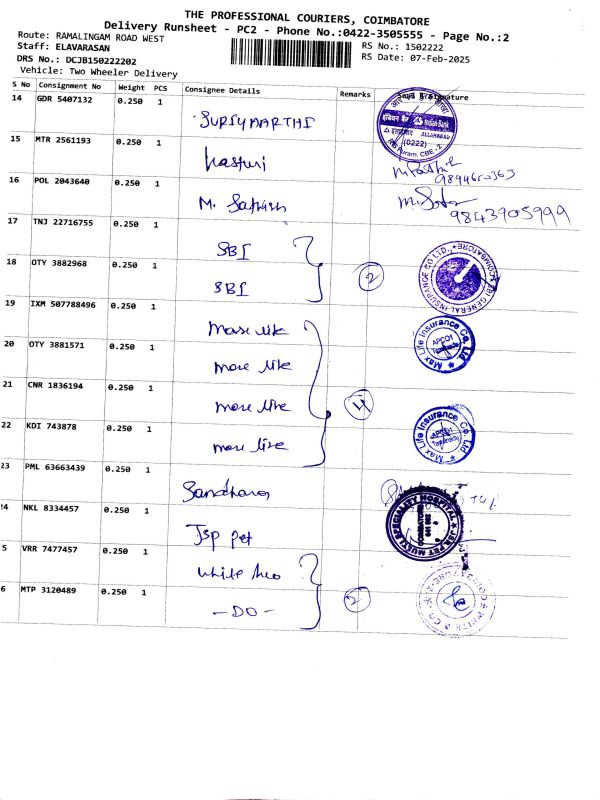 THE PROFESSIONAL COURIERS, COIMBATORE
Delivery Runsheet - PC2 - Phone No.:0422-3505555 - Page No.:2
Route: RAMALINGAM ROAD WEST
RS No.: 1502222
Staff: ELAVARASAN
RS Date: 07-Feb-2025
DRS No.: DCJB150222202
Vehicle: Two Wheeler Delivery
S No Consignment No Weight PCS Consignee Details Remarks
14 GDR 5407132 0.250 1 SURIYAARTHI
Indian Bank
ALLAHABAD
(0222)
R.S. Puram, CBE - 2
15 MTR 2561193 0.250 1 Kasturi
9894610363
16 POL 2043640 0.250 1 M. Sathish
9843905999
17 TNJ 22716755 0.250 1 SBI
18 OTY 3882968 0.250 1 SBI 2
SBI GENERAL INSURANCE CO LTD., * COIMBATORE *
19 IXM 507788496 0.250 1 Max life
Max Life Insurance Co. Ltd
20 OTY 3881571 0.250 1 max life
21 CNR 1836194 0.250 1 max life 4
22 KDI 743878 0.250 1 max life
Max Life Insurance Co. Ltd
23 PML 63663439 0.250 1 Sandhara
24 NKL 8334457 0.250 1 JSP pet
PET MULTI SPECIALITY HOSPITAL
COIMBATORE
5 VRR 7477457 0.250 1 White
6 MTP 3120489 0.250 1 - DO - 2